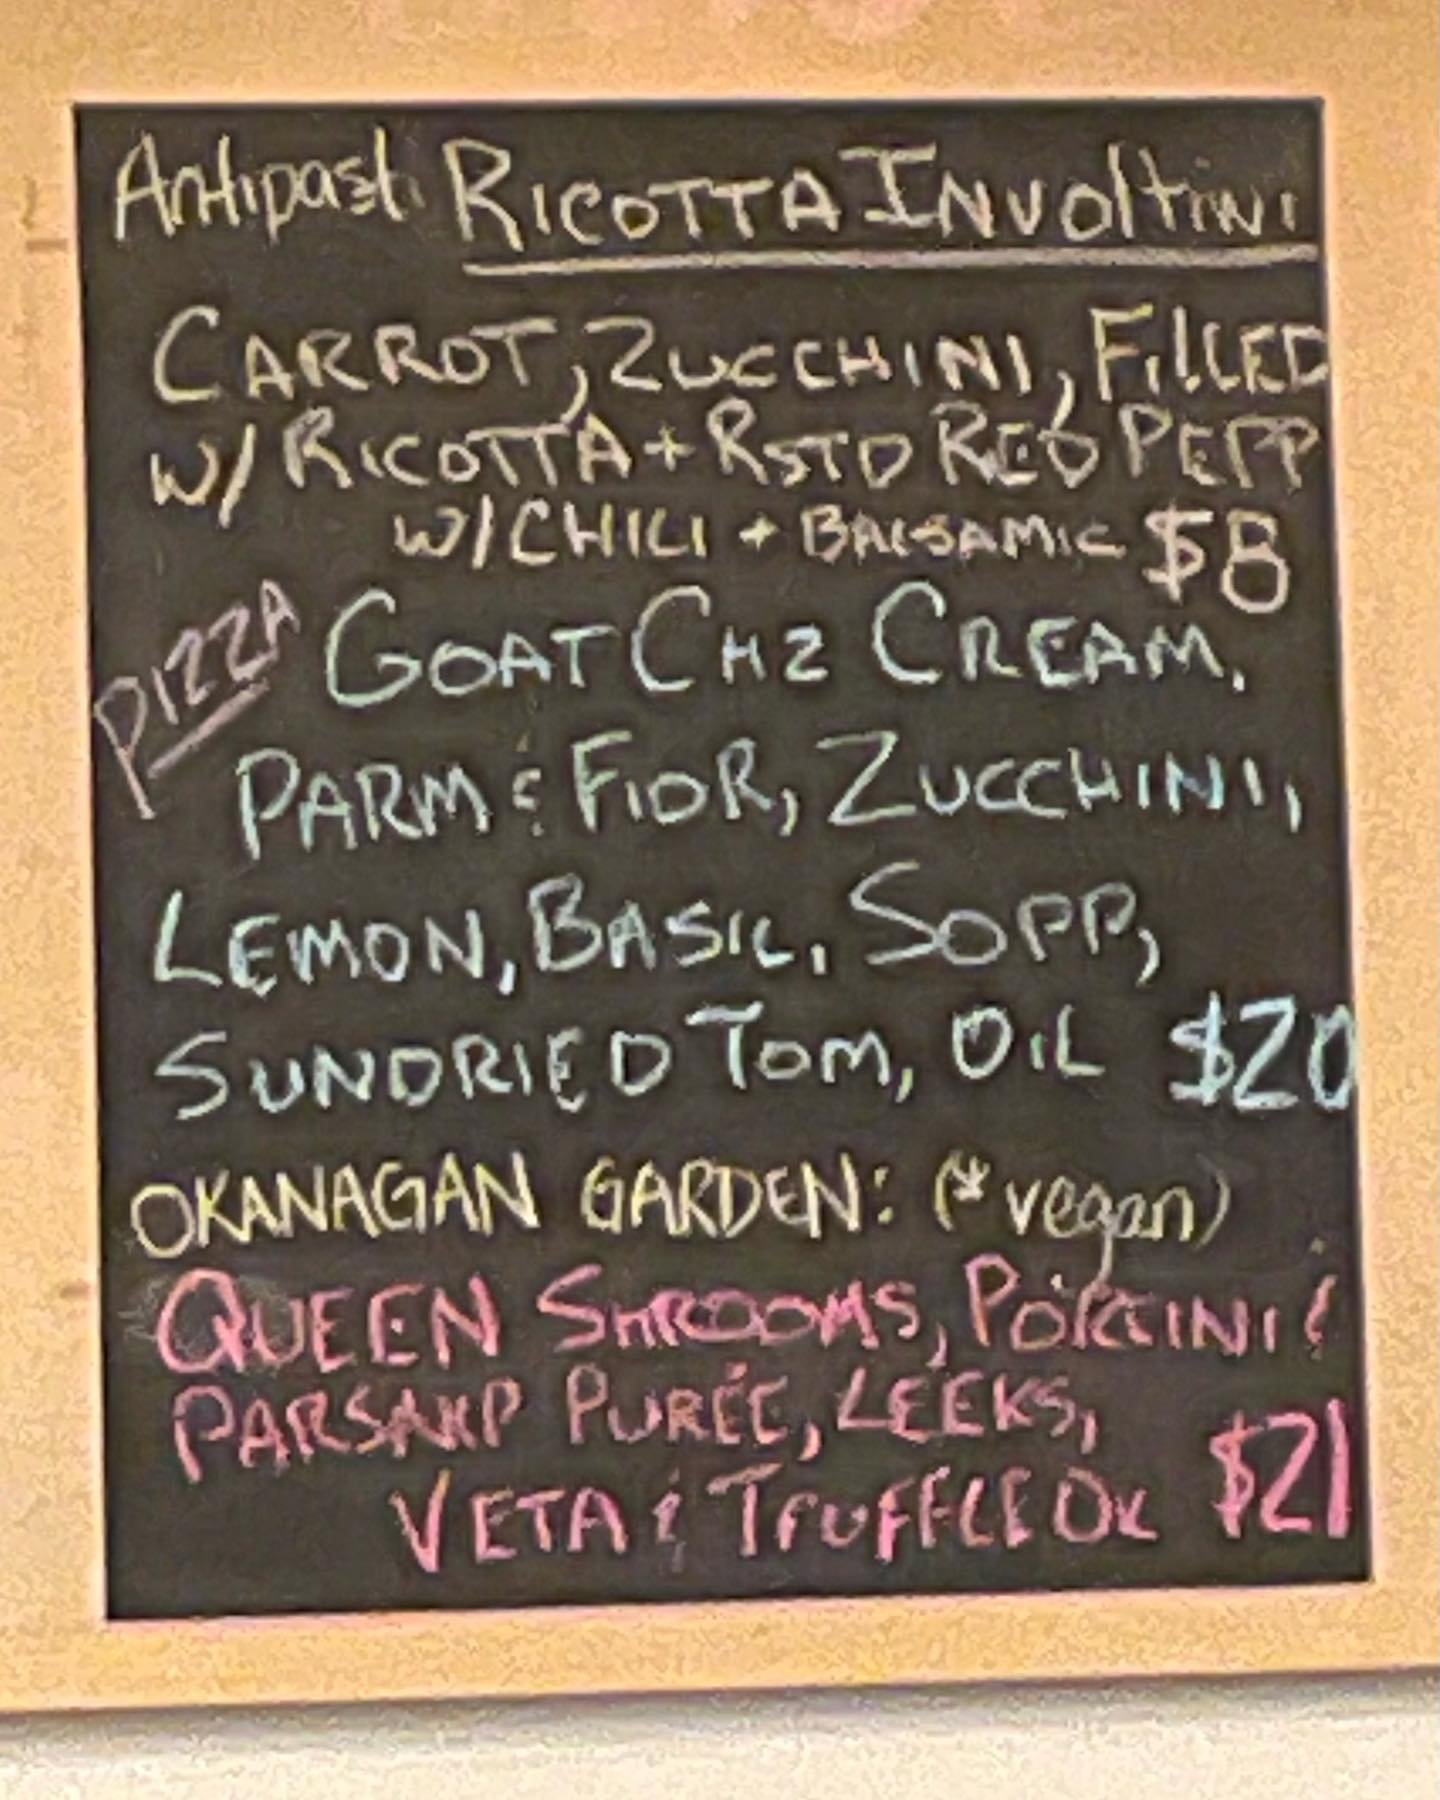 Antipasti RICOTTA INVOLTINI
CARROT, ZUCCHINI, FILLED
W/ RICOTTA + RSTD RED PEPP
W/ CHILI + BALSAMIC $8
PIZZA GOAT CHZ CREAM,
PARM & FIOR, ZUCCHINI,
LEMON, BASIL, SOPP,
SUNDRIED TOM, OIL $20
OKANAGAN GARDEN: (*vegan)
QUEEN SHROOMS, PORCINI &
PARSNIP PURÉE, LEEKS,
VETA & TRUFFLE OIL $21